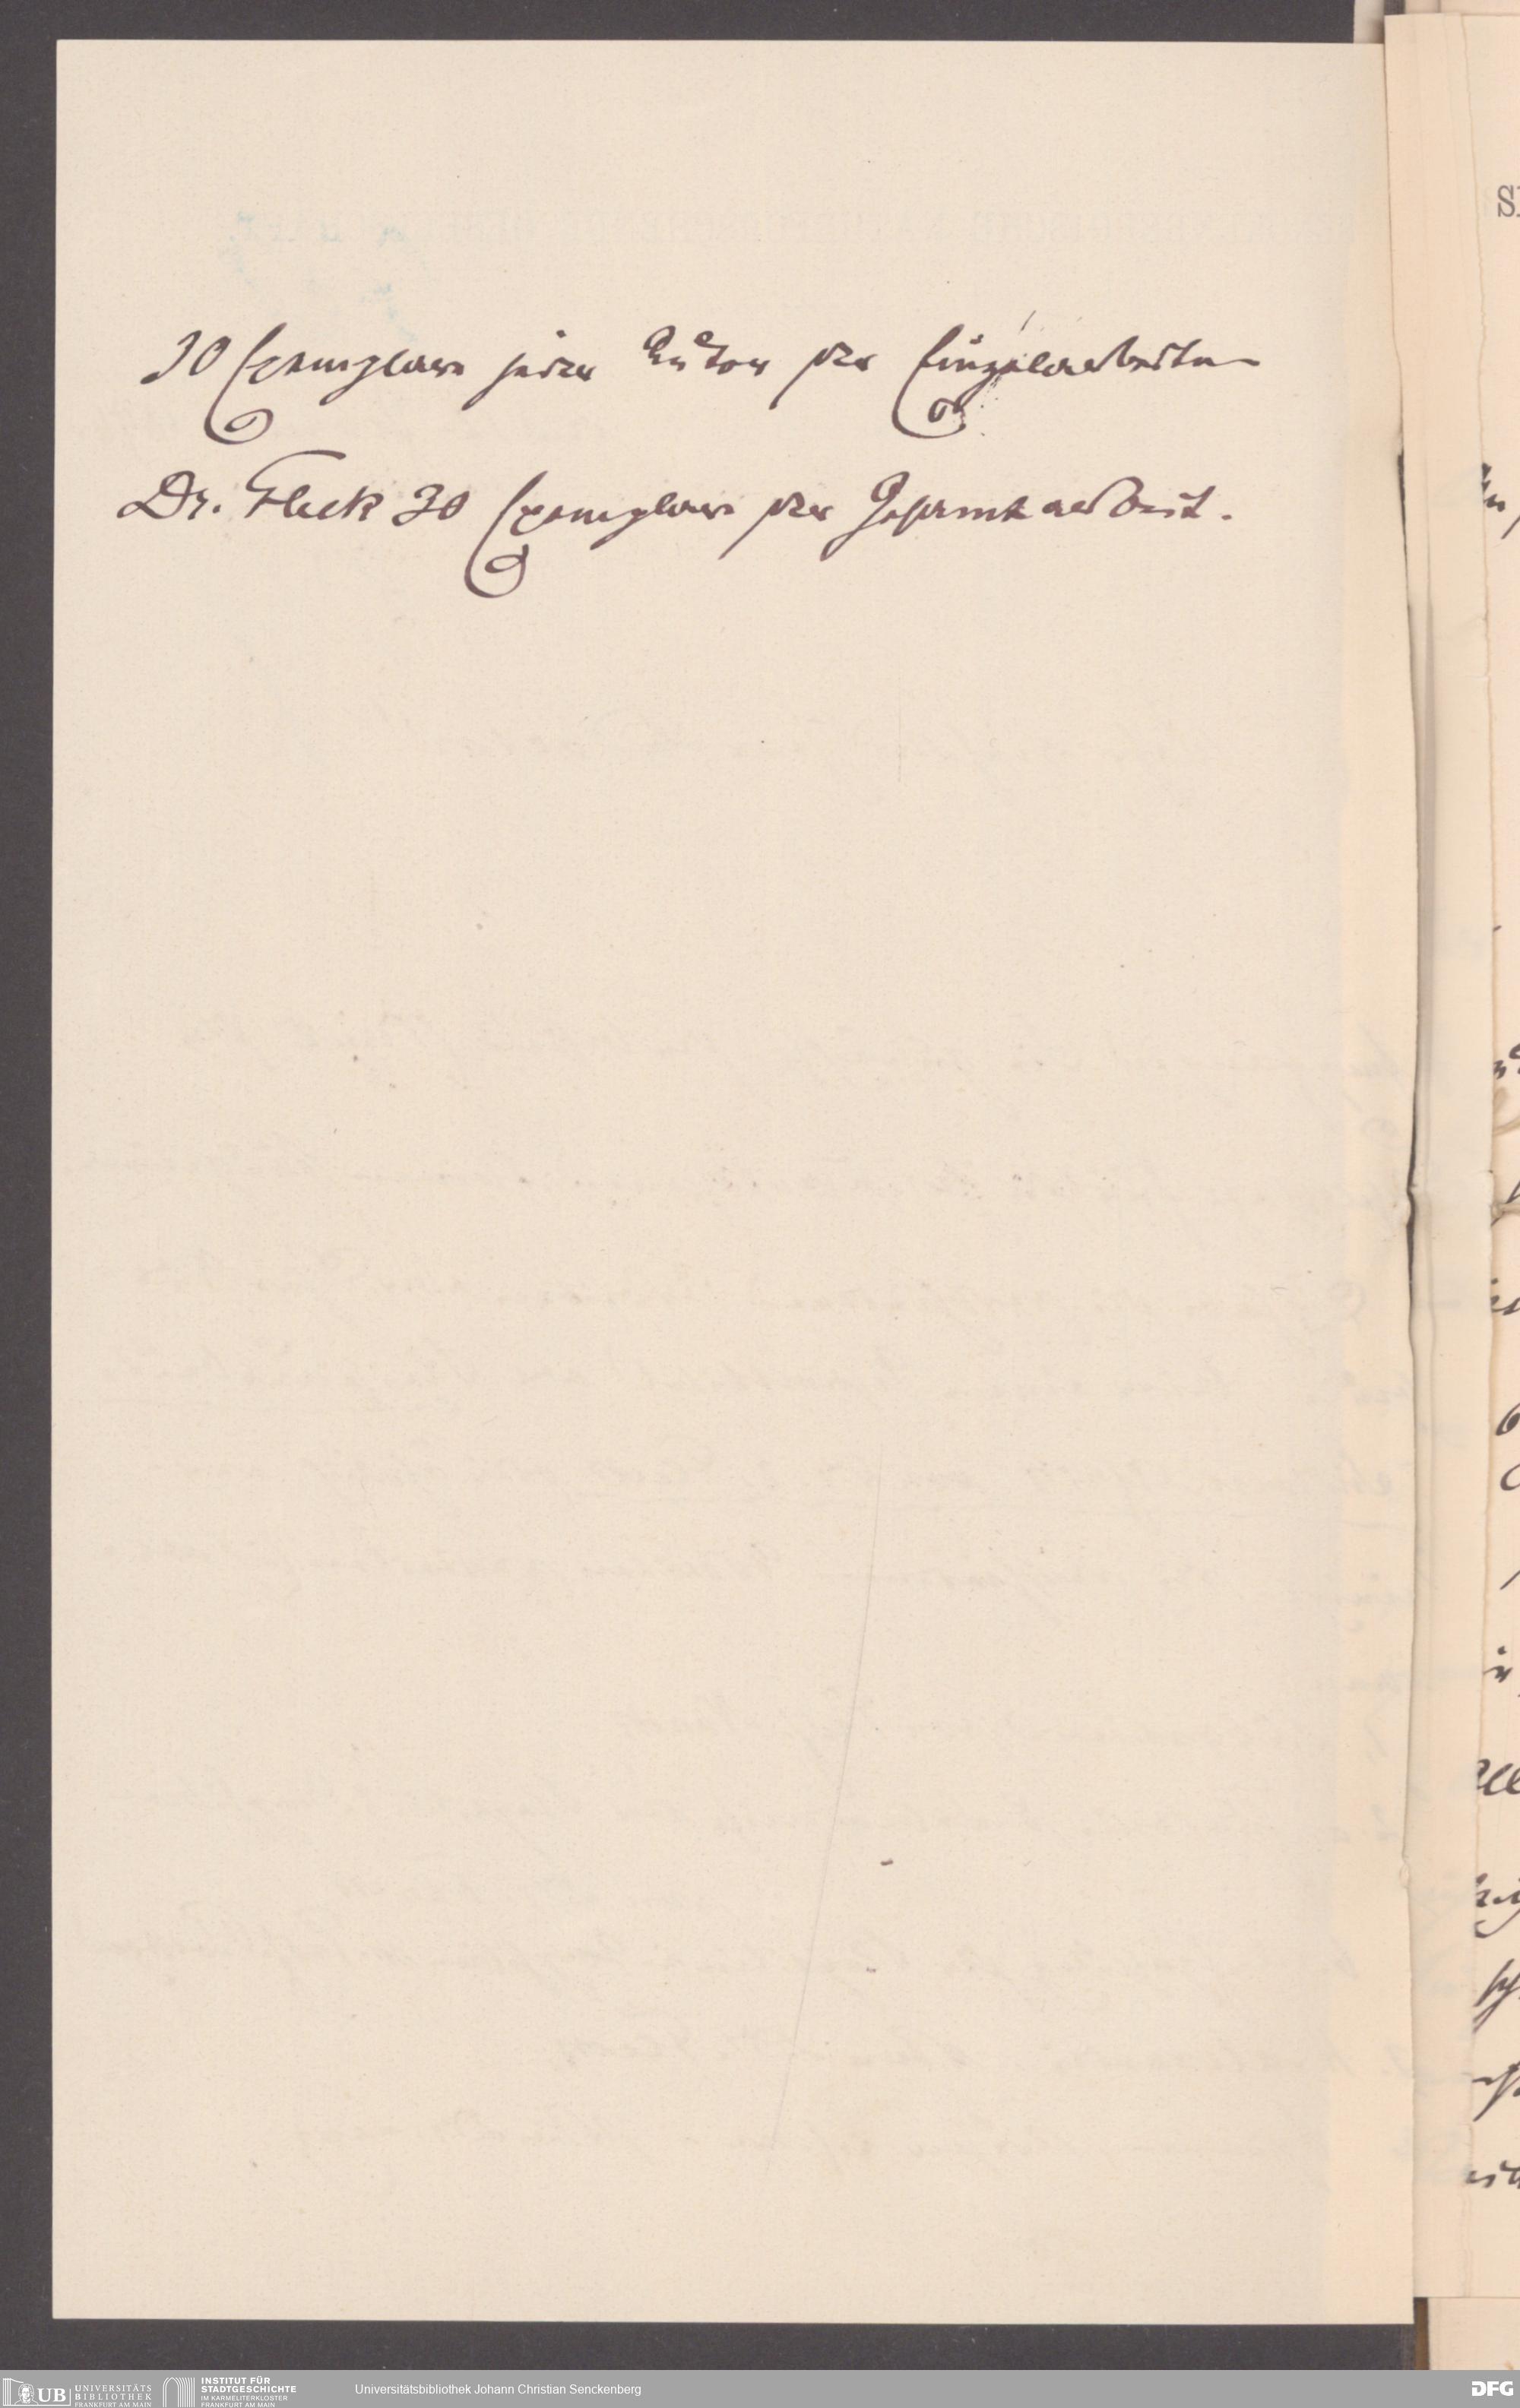 30 Exemplare jeder Autor der Einzelarbeiten
Dr. Fleck 30 Exemplare der Gesamtarbeit.
UB UNIVERSITÄTS BIBLIOTHEK FRANKFURT AM MAIN
INSTITUT FÜR STADTGESCHICHTE IM KARMELITERKLOSTER FRANKFURT AM MAIN
Universitätsbibliothek Johann Christian Senckenberg
DFG